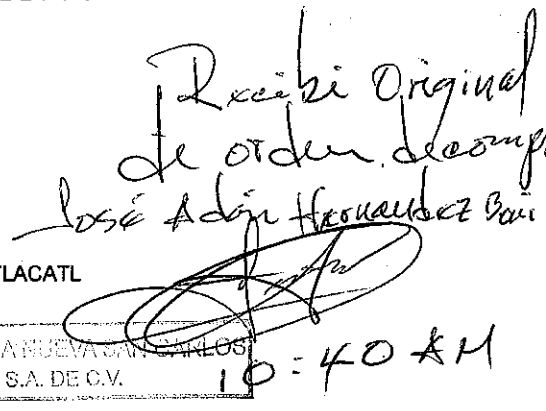 Recibi Original
de orden de comp
José Adán Hernandez
TLACATL
A NUEVA SAN CARLOS
S.A. DE C.V.
10:40 AM